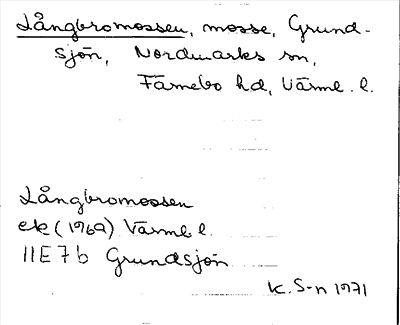 Långbromossen, mosse, Grund-
sjön, Nordmarks sn,
Färnebo hd, Värml. l.
Långbromossen
ek (1969) Värml l.
11E7b Grundsjön
K. S-n 1971